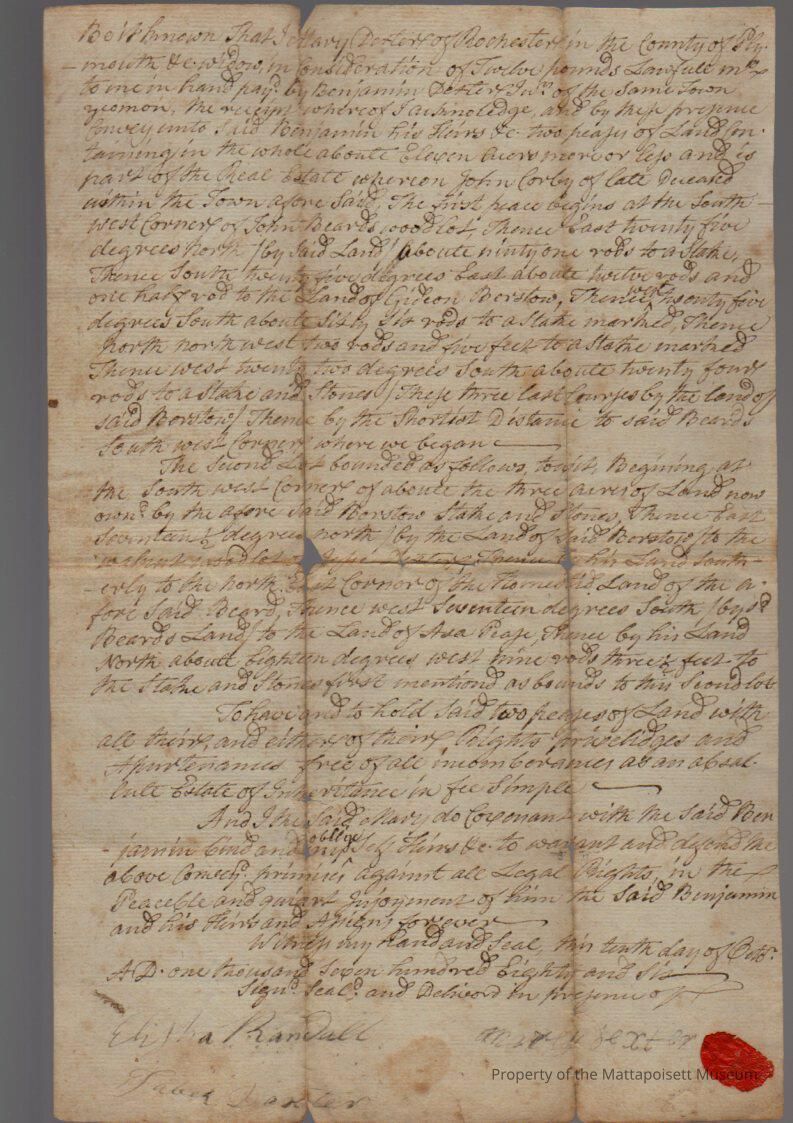 Be it known That I Mary Dexter of Rochester in the County of Ply-
mouth &c widow, in Consideration of Twelve pounds Lawfull mo
to me in hand payd by Benjamin Dexter Junr of the same Town
yeomon, the receipt whereof I acknoledge, and by these presence
Convey unto Said Benjamin his Heirs &c two peases of Land Con-
taining in the whole aboute Eleven Acers more or less and is
part of the Real Estate whereon John Corby of late Deceased
within the Town afore Said, The first peace begins at the South
west Corner of John Beards woodlot, Thence East twenty five
degrees north / by Said Land / aboute ninty one rods to a Stake,
Thence South twenty five degrees East aboute twelve rods and
one half rod to the Land of Gideon Borstow, Thence west twenty five
degrees South aboute Sixty Six rods to a Stake marked, Thence
North north west two rods and five feet to a Stake marked
Thence west twenty two degrees South aboute twenty four
rods to a Stake and Stones / These three last Courses by the land of
said Borstow / Thence by the Shortist Distance to said Beards
South west Corner where we began
The Second Lot bounded as follows, towit, Begining at
the South west Corner of aboute the three acres of Land now
ownd by the afore Said Borstow Stake and Stones, Thence East
Seventeen ½ degrees north / by the Land of Said Borstow / to the
woodlot of Thence his Land South-
erly to the north East Corner of the Homested Land of the a-
fore Said Beard, Thence west Seventeen degrees South / by sd
Beards Land / to the Land of Asa Pease, Thence by his Land
North aboute Eighteen degrees west nine rods three ½ feet to
the Stake and Stones first mentiond as bounds to this Second lot
To have and to hold Said two peases of Land with
all their, and either of their Rights priveledges and
Apurtenances free of all incomberances as an absal-
lute Estate of Inheritance in fee Simple
And I the Said Mary do Covenant with the Said Ben-
jamin bind and oblige my Self Heirs &c to warant and defend the
above Conveyd primises against all Legal Rights, in the
Peaceble and quiart Injoyment of him the Said Benjamin
and his Heirs and Asigns forever
Witness my Hand and Seal, this tenth day of Octbr
AD. one thousand Seven hundred Eighty and Six
Signd Seald and Deliverd in presence of
Elisha Randall Mary Dexter
Dexter
Property of the Mattapoisett Museum